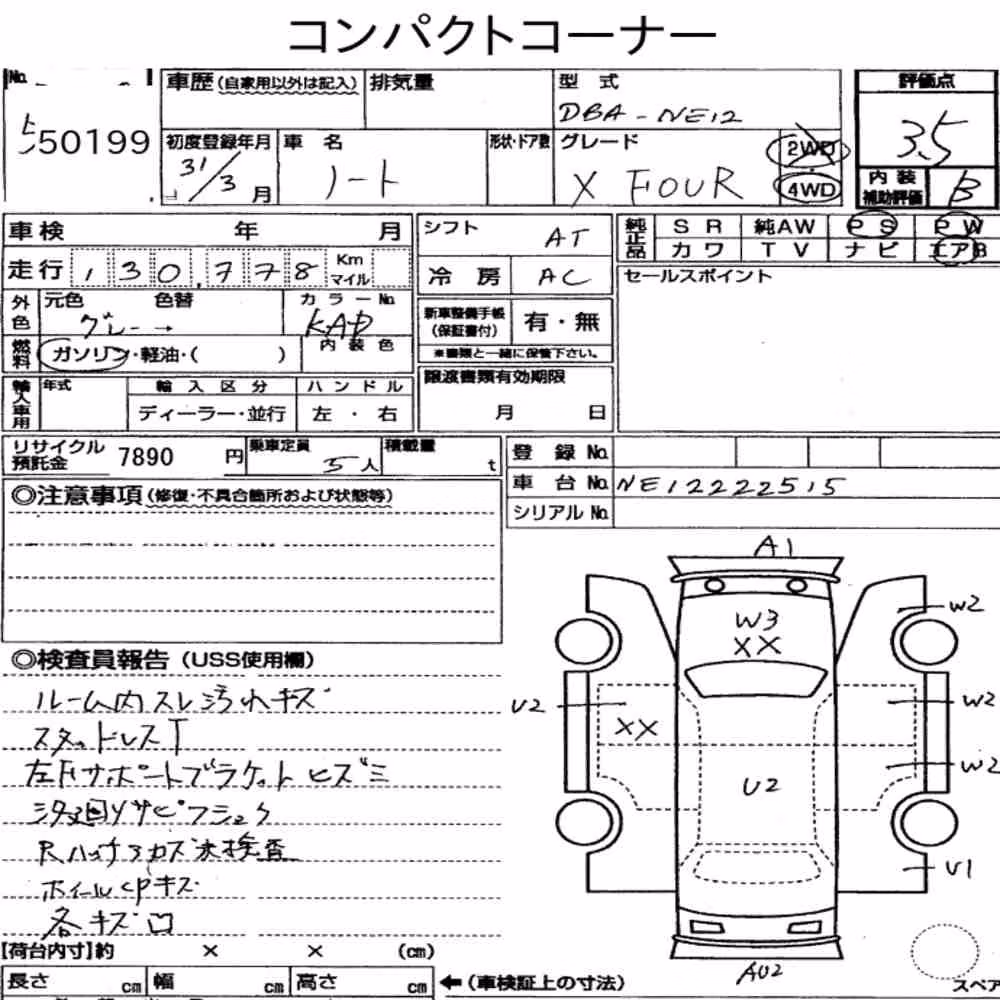 コンパクトコーナー
No.
車歴 (自家用以外は記入) 排気量 型 式 評価点
DBA-NE12
ち50199 3.5
初度登録年月 車 名 形状・ドア数 グレード 2WD
31/3月 ノート X FOUR 4WD
内 装 補助評価 B
車検 年 月 シフト AT 純正品 S R 純AW P S P W
カワ T V ナビ エアB
走行 130,778 Km マイル 冷 房 AC セールスポイント
外色 元色 色替 カラーNo.
グレー→ KAD
新車整備手帳 (保証書付) 有・無
燃料 ガソリン・軽油・( ) 内 装 色
※書類と一緒に保管下さい。
輸入車用 年式 輸 入 区 分 ハ ン ド ル 譲渡書類有効期限
ディーラー・並行 左 ・ 右 月 日
リサイクル預託金 7890 円 乗車定員 5人 積載量 t 登 録 No.
車 台 No. NE12222515
◎注意事項 (修復・不具合箇所および状態等) シリアル No.
A1
W2
W3
XX
◎検査員報告 (USS使用欄)
ルーム内スレ汚れキズ U2 W2
XX
スタッドレスT
左Fサポートブラケットヒズミ W2
U2
下廻りサビフシュク
Rハッチ
ホイールcpキズ U1
各キズ凹
【荷台内寸】約 × × (cm)
AU2
長さ cm 幅 cm 高さ cm ←(車検証上の寸法) スペア